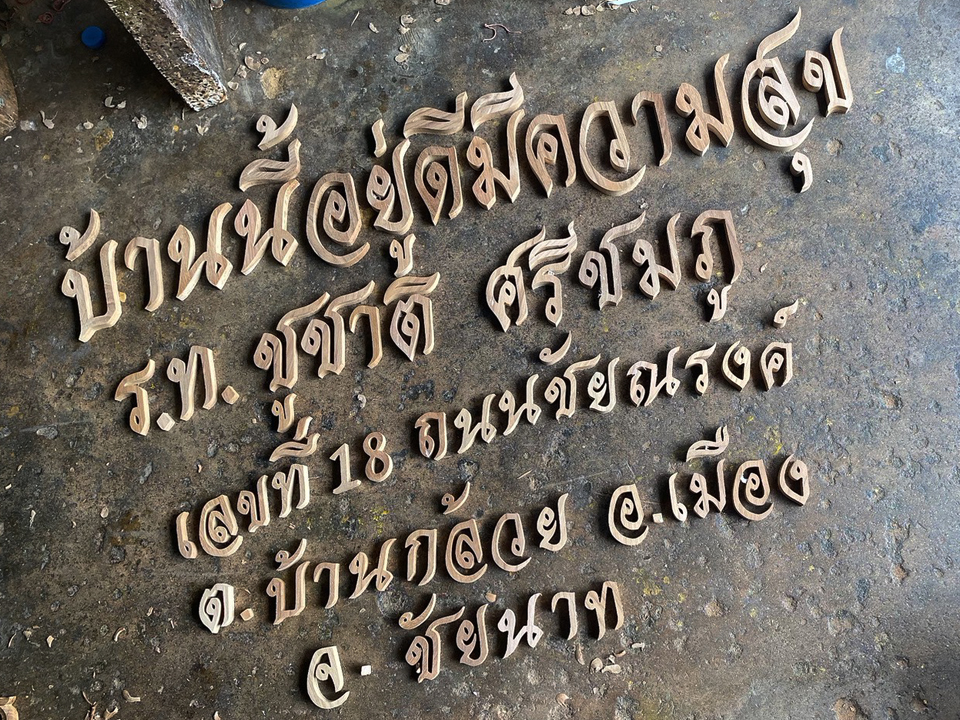 บ้านนี้อยู่ดีมีความสุข
ร.ท. ชูชาติ ศรีชมภู
เลขที่ 18 ถนนชัยณรงค์
ต.บ้านกล้วย อ.เมือง
จ. ชัยนาท